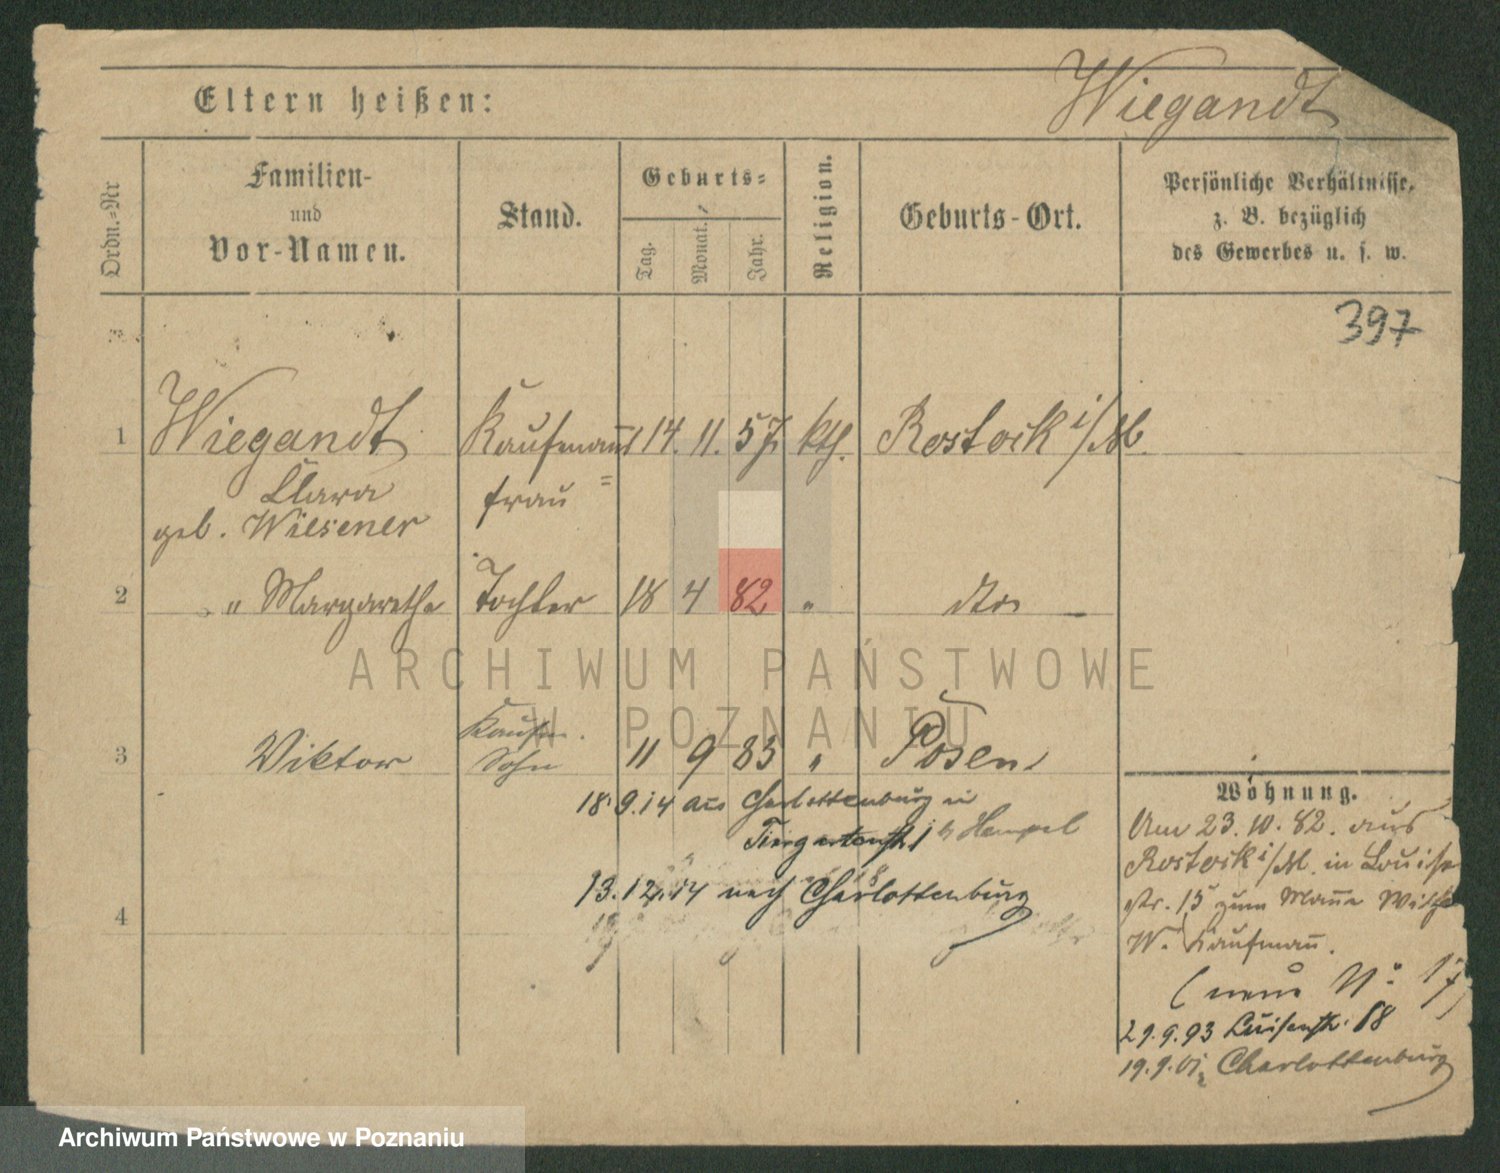 Eltern heißen:
Wiegandt
Ordn.=Nr
Familien-
und
Vor-Namen.
Stand.
Geburts=
Tag.
Monat.
Jahr.
Religion.
Geburts-Ort.
Persönliche Verhältnisse,
z. B. bezüglich
des Gewerbes u. s. w.
397
1 Wiegandt Kaufmanns 14. 11. 57 kth. Rostock i/M.
Clara frau
geb. Wiesener
2 " Margarethe Tochter 18 4 82 " dto
3 Viktor Kaufm. Sohn 11 9 83 " Posen
18.9.14 aus Charlottenburg in
Tiergartenstr 1 b Hempel
13.12.14 nach Charlottenburg
4
Wohnung.
Am 23.10.82. aus
Rostock i/M. in Louise
str. 15 zum Manne
W. Kaufmann.
(neue No 17)
29.9.93 Luisenstr. 18
19.9.01 Charlottenburg
ARCHIWUM PAŃSTWOWE
W POZNANIU
Archiwum Państwowe w Poznaniu